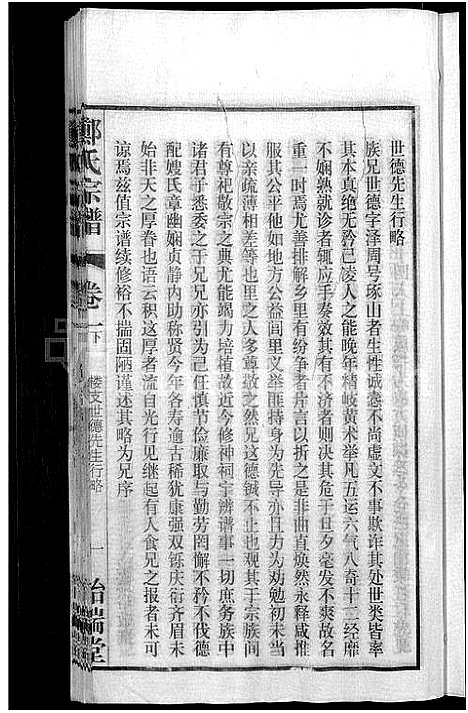 世德先生行略
族兄世德字泽周号琢山者生性诚悫不尚虚文不事欺诈其处世类皆率
其本真绝无矜己凌人之能晚年精岐黄术举凡五运六气八奇十二经靡
不娴熟就诊者辄应手奏效其有不济者则决其危于旦夕毫发不爽故名
重一时焉尤善排解乡里有纷争者片言以折之是非曲直焕然永释咸推
服其公平他如地方公益闾里义举匪特身为先导亦且力为劝勉初未当
以亲疏薄相差等也里之人多尊敬之然兄这德铖不止也观其于宗族间
有尊祀敬宗之典尤能竭力培植故近今修神祠宇辨谱事一切庶务族中
诸君子悉委之于兄亦引为己任慎节俭廉取与勤劳罔懈不矜不伐德
配嫂氏章幽娴贞静内助称贤今年各寿逾古稀犹康强双铄庆衍齐眉未
始非天之厚眷也语云积这厚者流自光行见继起有人食兄之报者未可
谅焉兹值宗谱续修裕不揣固陋谨述其略为兄序
鄭氏宗譜
卷一下
楼支世德先生行略
一